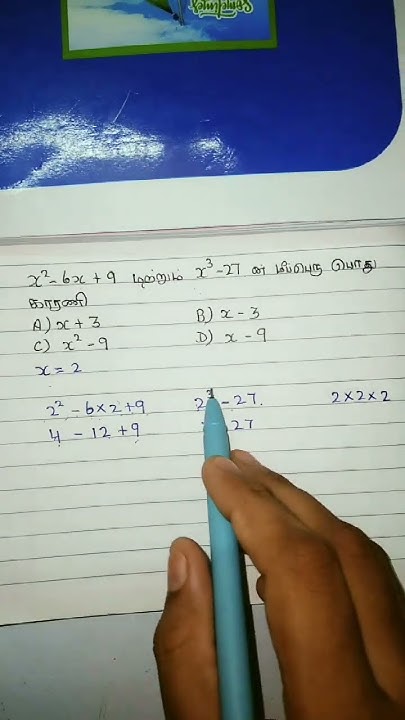 x² - 6x + 9 மற்றும் x³ - 27 ன் மீப்பெரு பொது
காரணி
A) x + 3 B) x - 3
C) x² - 9 D) x - 9
x = 2
2² - 6×2 + 9 2³ - 27. 2×2×2
4 - 12 + 9 27